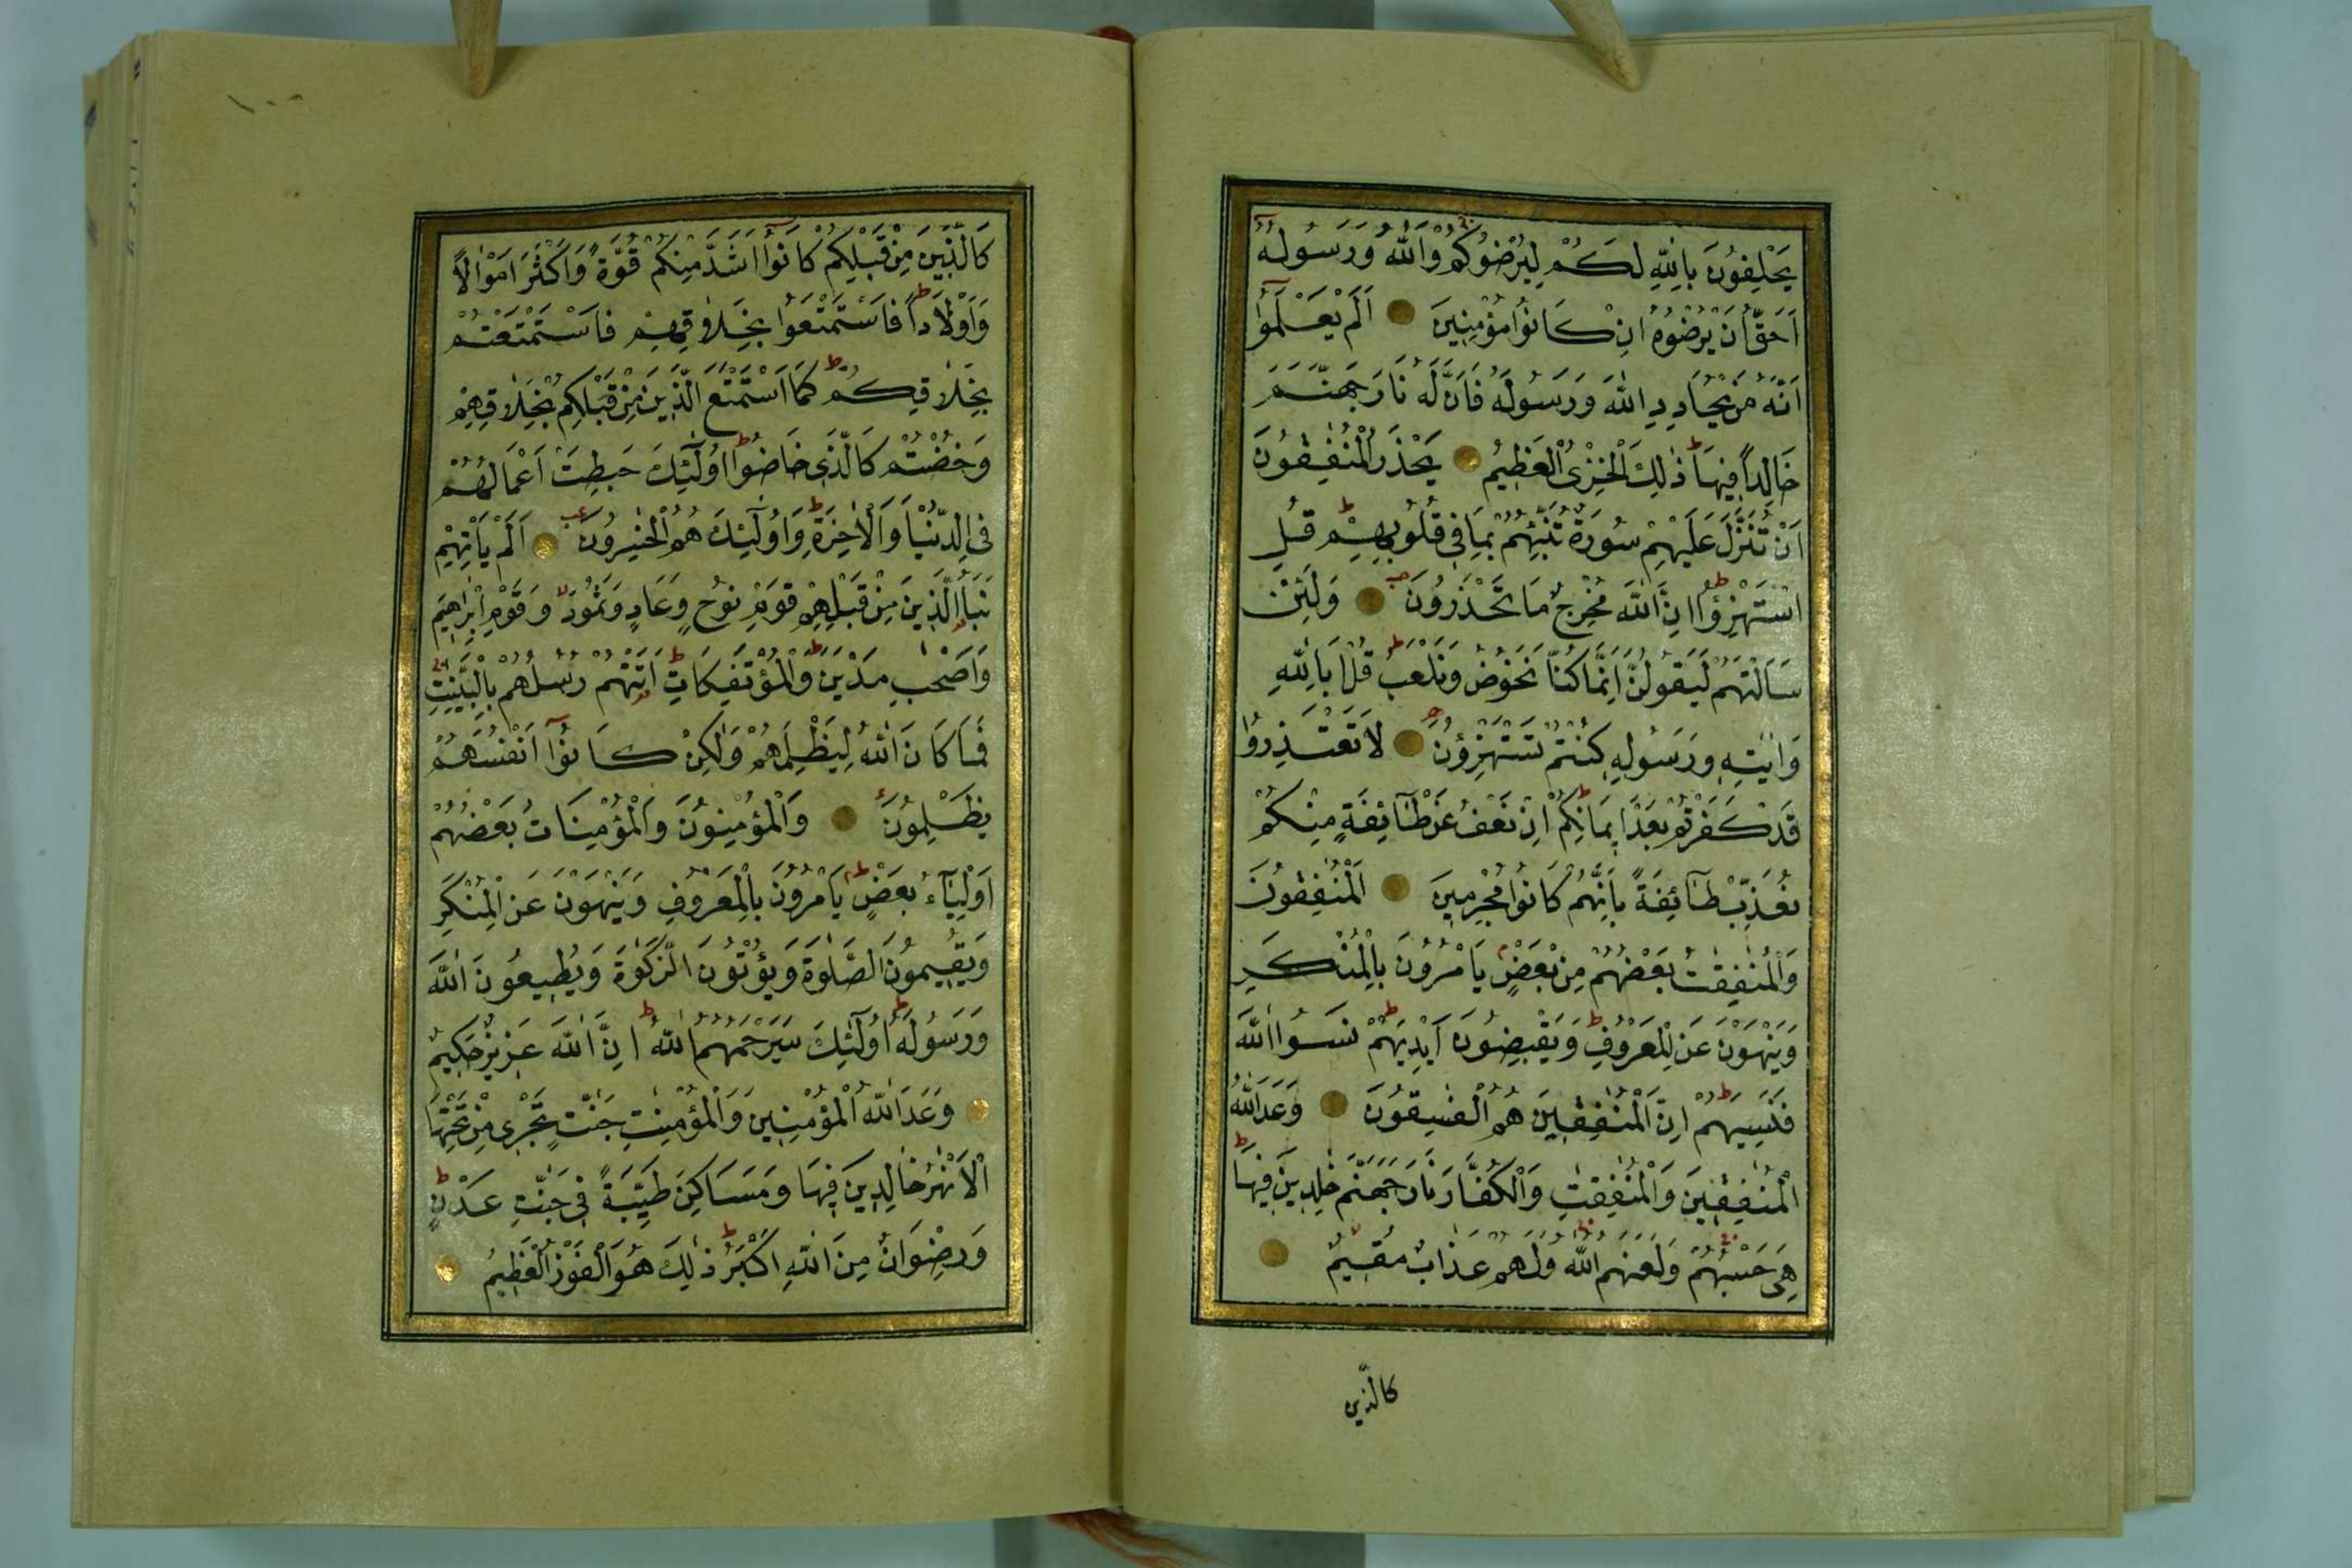 يَحْلِفُونَ بِاللّٰهِ لَكُمْ لِيُرْضُوكُمْ وَاللّٰهُ وَرَسُولُهُٓ
اَحَقُّ اَنْ يُرْضُوهُ اِنْ كَانُوا مُؤْمِنِينَ اَلَمْ يَعْلَمُٓوا
اَنَّهُ مَنْ يُحَادِدِ اللّٰهَ وَرَسُولَهُ فَاَنَّ لَهُ نَارَ جَهَنَّمَ
خَالِداً فِيهَا ذٰلِكَ الْخِزْيُ الْعَظِيمُ يَحْذَرُ الْمُنٰفِقُونَ
اَنْ تُنَزَّلَ عَلَيْهِمْ سُورَةٌ تُنَبِّئُهُمْ بِمَا فِي قُلُوبِهِمْ قُلِ
اسْتَهْزِؤُا اِنَّ اللّٰهَ مُخْرِجٌ مَا تَحْذَرُونَ وَلَئِنْ
سَاَلْتَهُمْ لَيَقُولُنَّ اِنَّمَا كُنَّا نَخُوضُ وَنَلْعَبُ قُلْ اَبِاللّٰهِ
وَاٰيٰتِهِ وَرَسُولِهِ كُنْتُمْ تَسْتَهْزِؤُنَ لَا تَعْتَذِرُوا
قَدْ كَفَرْتُمْ بَعْدَ اِيمَانِكُمْ اِنْ نَعْفُ عَنْ طَٓائِفَةٍ مِنْكُمْ
نُعَذِّبْ طَٓائِفَةً بِاَنَّهُمْ كَانُوا مُجْرِمِينَ اَلْمُنٰفِقُونَ
وَالْمُنٰفِقٰتُ بَعْضُهُمْ مِنْ بَعْضٍ يَاْمُرُونَ بِالْمُنْكَرِ
وَيَنْهَوْنَ عَنِ الْمَعْرُوفِ وَيَقْبِضُونَ اَيْدِيَهُمْ نَسُوا اللّٰهَ
فَنَسِيَهُمْ اِنَّ الْمُنٰفِقِينَ هُمُ الْفٰسِقُونَ وَعَدَ اللّٰهُ
الْمُنٰفِقِينَ وَالْمُنٰفِقٰتِ وَالْكُفَّارَ نَارَ جَهَنَّمَ خٰلِدِينَ فِيهَا
هِيَ حَسْبُهُمْ وَلَعَنَهُمُ اللّٰهُ وَلَهُمْ عَذَابٌ مُقِيمٌ
كالّذين
١٠٠
كَالَّذِينَ مِنْ قَبْلِكُمْ كَانُٓوا اَشَدَّ مِنْكُمْ قُوَّةً وَاَكْثَرَ اَمْوَالاً
وَاَوْلَاداً فَاسْتَمْتَعُوا بِخَلَاقِهِمْ فَاسْتَمْتَعْتُمْ
بِخَلَاقِكُمْ كَمَا اسْتَمْتَعَ الَّذِينَ مِنْ قَبْلِكُمْ بِخَلَاقِهِمْ
وَخُضْتُمْ كَالَّذِي خَاضُوا اُولٰٓئِكَ حَبِطَتْ اَعْمَالُهُمْ
فِي الدُّنْيَا وَالْاٰخِرَةِ وَاُولٰٓئِكَ هُمُ الْخٰسِرُونَ اَلَمْ يَاْتِهِمْ
نَبَاُ الَّذِينَ مِنْ قَبْلِهِمْ قَوْمِ نُوحٍ وَعَادٍ وَثَمُودَ وَقَوْمِ اِبْرٰهِيمَ
وَاَصْحٰبِ مَدْيَنَ وَالْمُؤْتَفِكَاتِ اَتَتْهُمْ رُسُلُهُمْ بِالْبَيِّنٰتِ
فَمَا كَانَ اللّٰهُ لِيَظْلِمَهُمْ وَلٰكِنْ كَانُٓوا اَنْفُسَهُمْ
يَظْلِمُونَ وَالْمُؤْمِنُونَ وَالْمُؤْمِنَاتُ بَعْضُهُمْ
اَوْلِيَٓاءُ بَعْضٍ يَاْمُرُونَ بِالْمَعْرُوفِ وَيَنْهَوْنَ عَنِ الْمُنْكَرِ
وَيُقِيمُونَ الصَّلٰوةَ وَيُؤْتُونَ الزَّكٰوةَ وَيُطِيعُونَ اللّٰهَ
وَرَسُولَهُ اُولٰٓئِكَ سَيَرْحَمُهُمُ اللّٰهُ اِنَّ اللّٰهَ عَزِيزٌ حَكِيمٌ
وَعَدَ اللّٰهُ الْمُؤْمِنِينَ وَالْمُؤْمِنٰتِ جَنّٰتٍ تَجْرِي مِنْ تَحْتِهَا
الْاَنْهٰرُ خَالِدِينَ فِيهَا وَمَسَاكِنَ طَيِّبَةً فِي جَنّٰتِ عَدْنٍ
وَرِضْوَانٌ مِنَ اللّٰهِ اَكْبَرُ ذٰلِكَ هُوَ الْفَوْزُ الْعَظِيمُ